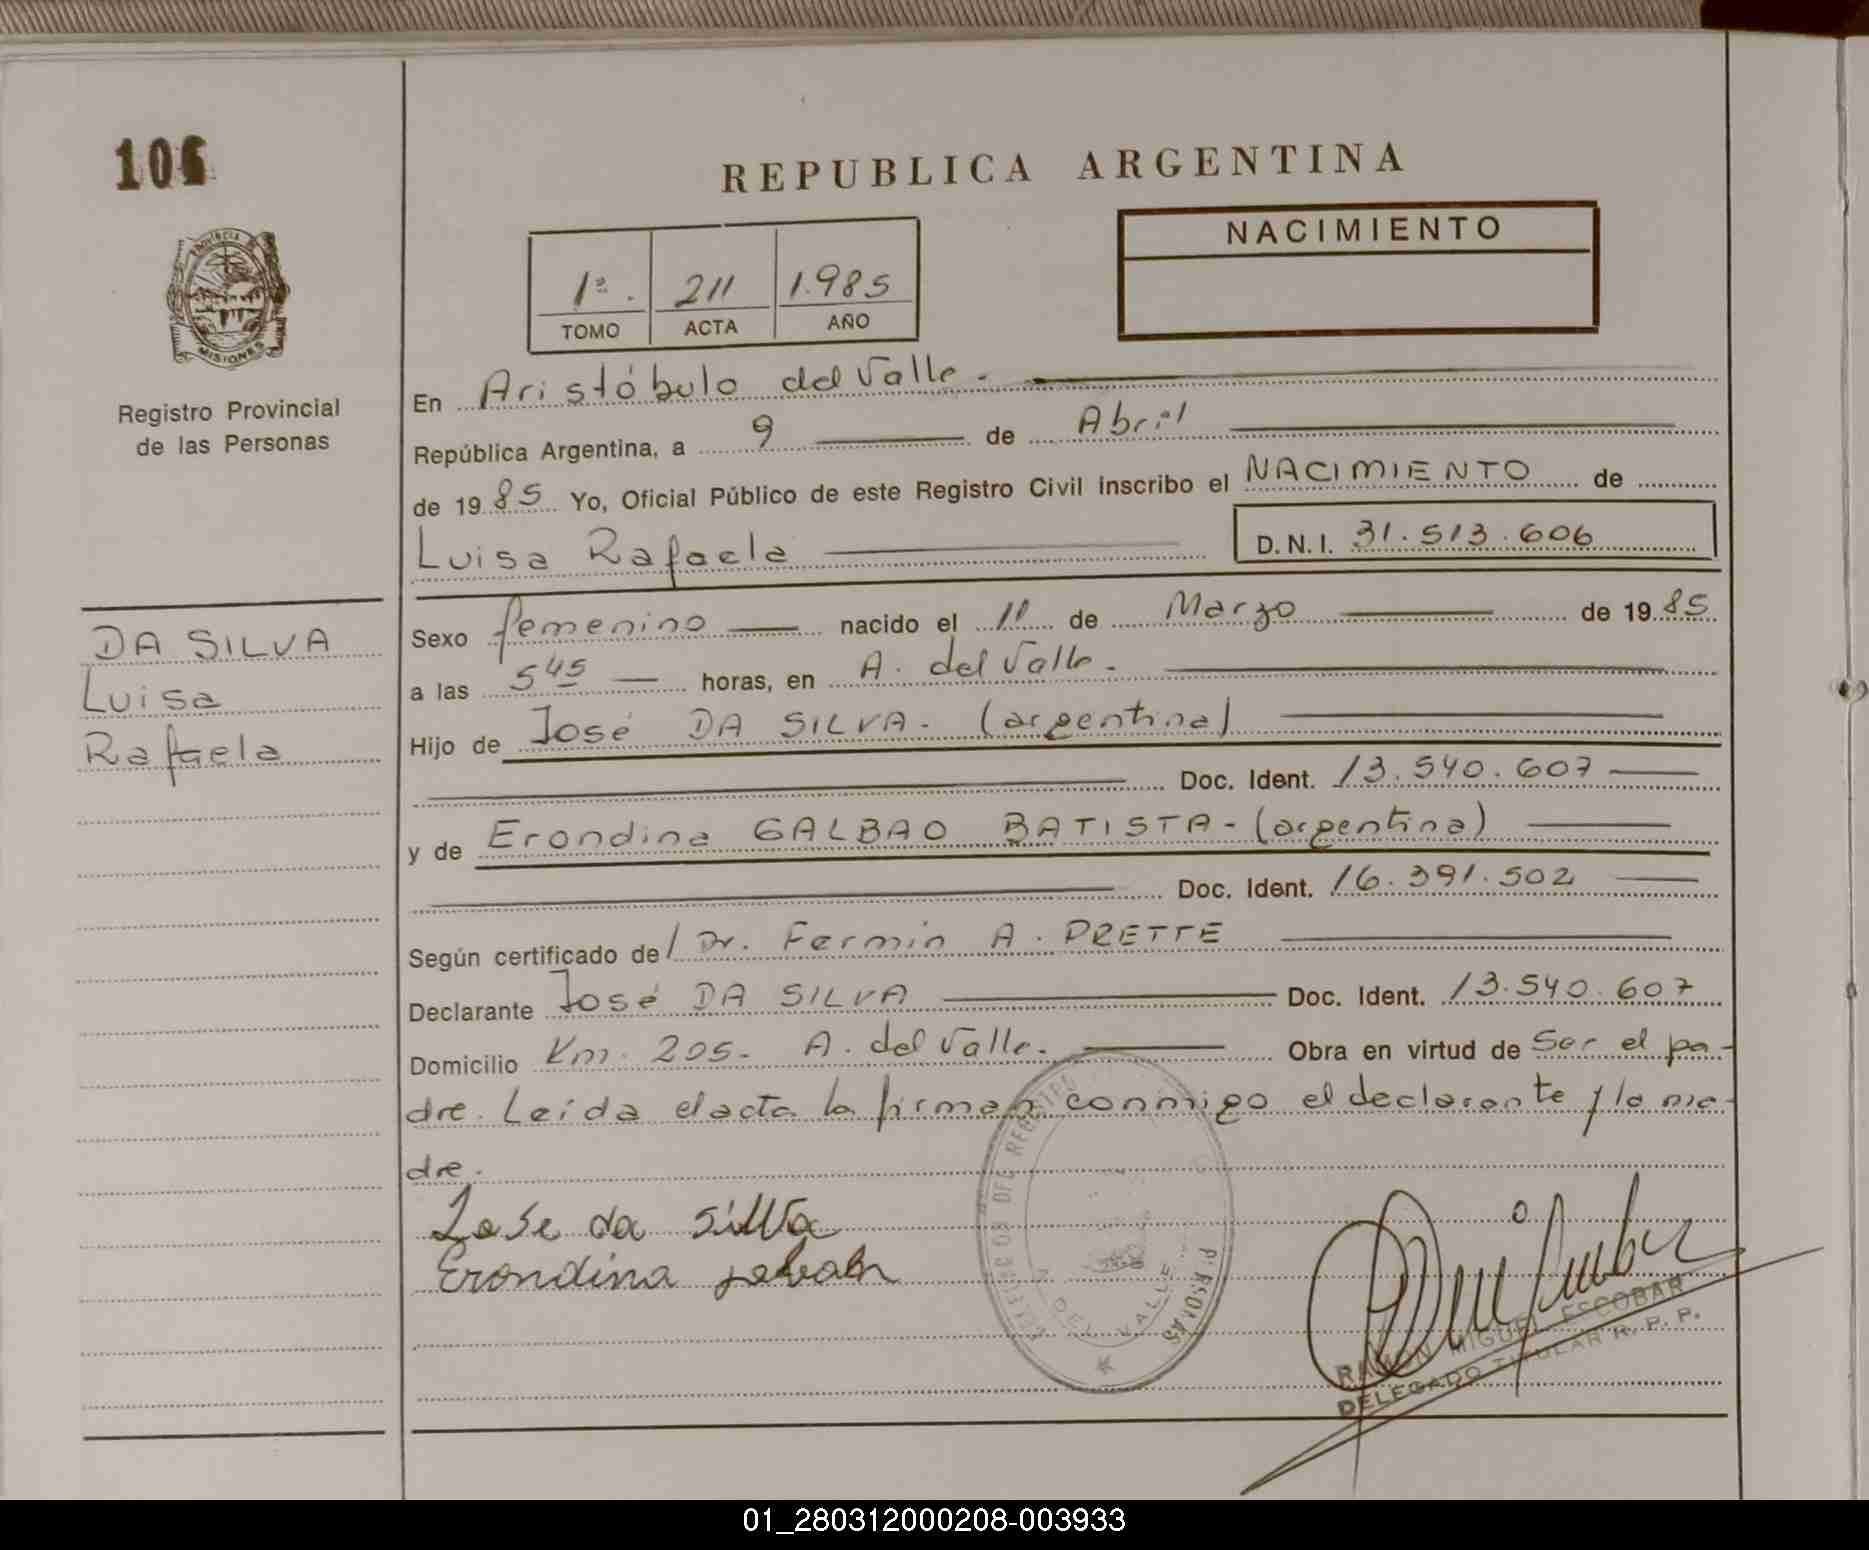 106
REPUBLICA ARGENTINA
NACIMIENTO
1ª. 211 1.985
TOMO ACTA AÑO
PROVINCIA DE
MISIONES
Registro Provincial
de las Personas
DA SILVA
Luisa
Rafaela
En Aristóbulo del Valle.
República Argentina, a 9 de Abril
de 1985 Yo, Oficial Público de este Registro Civil inscribo el NACIMIENTO de
Luisa Rafaela D.N.I. 31.513.606
Sexo femenino nacido el 11 de Marzo de 1985
a las 5 45 horas, en A. del Valle.
Hijo de José DA SILVA. (argentina)
Doc. Ident. 13.540.607
y de Erondina GALBAO BATISTA - (argentina)
Doc. Ident. 16.391.502
Según certificado de/ Dr. Fermin A. PRETTE
Declarante José DA SILVA Doc. Ident. 13.540.607
Domicilio Km. 205. A. del Valle. Obra en virtud de Ser el pa-
dre. Leída el acta la firman conmigo el declarante y la ma-
dre.
Jose da silva
Erondina
DEL REGISTRO
PERSONAS
DEL VALLE
RAMON MIGUEL ESCOBAR
DELEGADO TITULAR R. P. P.
01_280312000208-003933